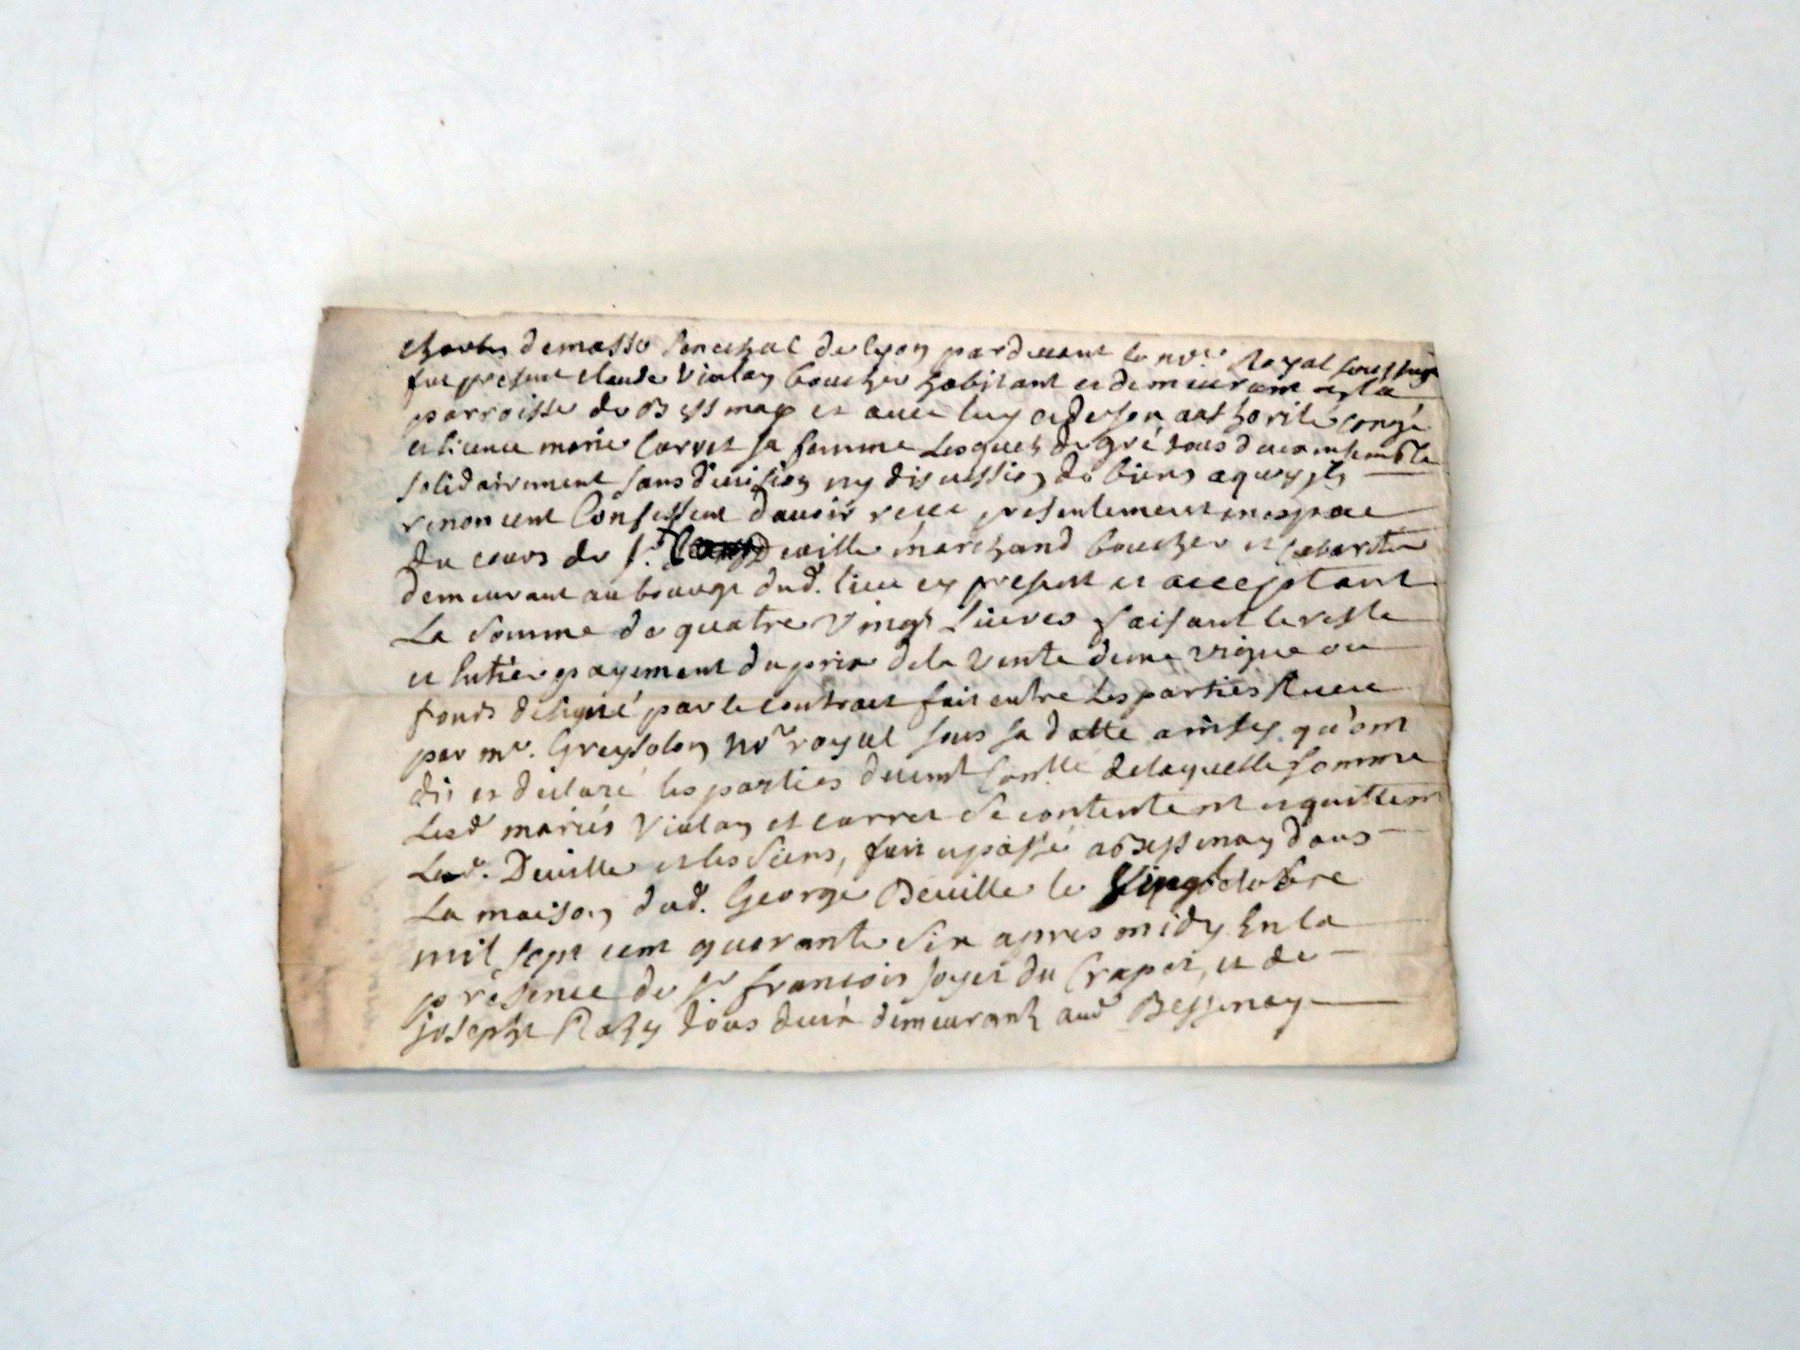 charles demasso senechal de lyon pardevant le nore. Royal soussigné
fut present claude Vialay boucher habitant et demeurant en la
parroisse de Bessenay et avec luy et de son authorité congé
et licence marie Carret sa femme Lesquels de gré tous deux ensemble
solidairement sans division ny discussion de biens a quoy ils
renoncent Confessent davoir receu presentement en espece
du cours de sr. deville marchand boucher et cabartier
demeurant au bourge dud. lieu cy present et acceptant
La somme de quatre Vingt Livres faisant le reste
et entier payement du prix de la Vente dune vigne ou
fonds designé par le contract fait entre Les parties Receu
par me. Greysolon nore royal sous sa datte ainsy qu'ont
dit et declaré les parties delaquelle somme
Lesd mariés Vialay et carret se contentent et quittent
Led. Deville et les siens, fait et passé a Bessenay dans
La maison dud. George Deville le Vingt octobre
mil sept cent quarante six apres midy En la
presence de sr francois joyet du Crapet, et de
joseph Razy tous deux demeurants aud Bessenay